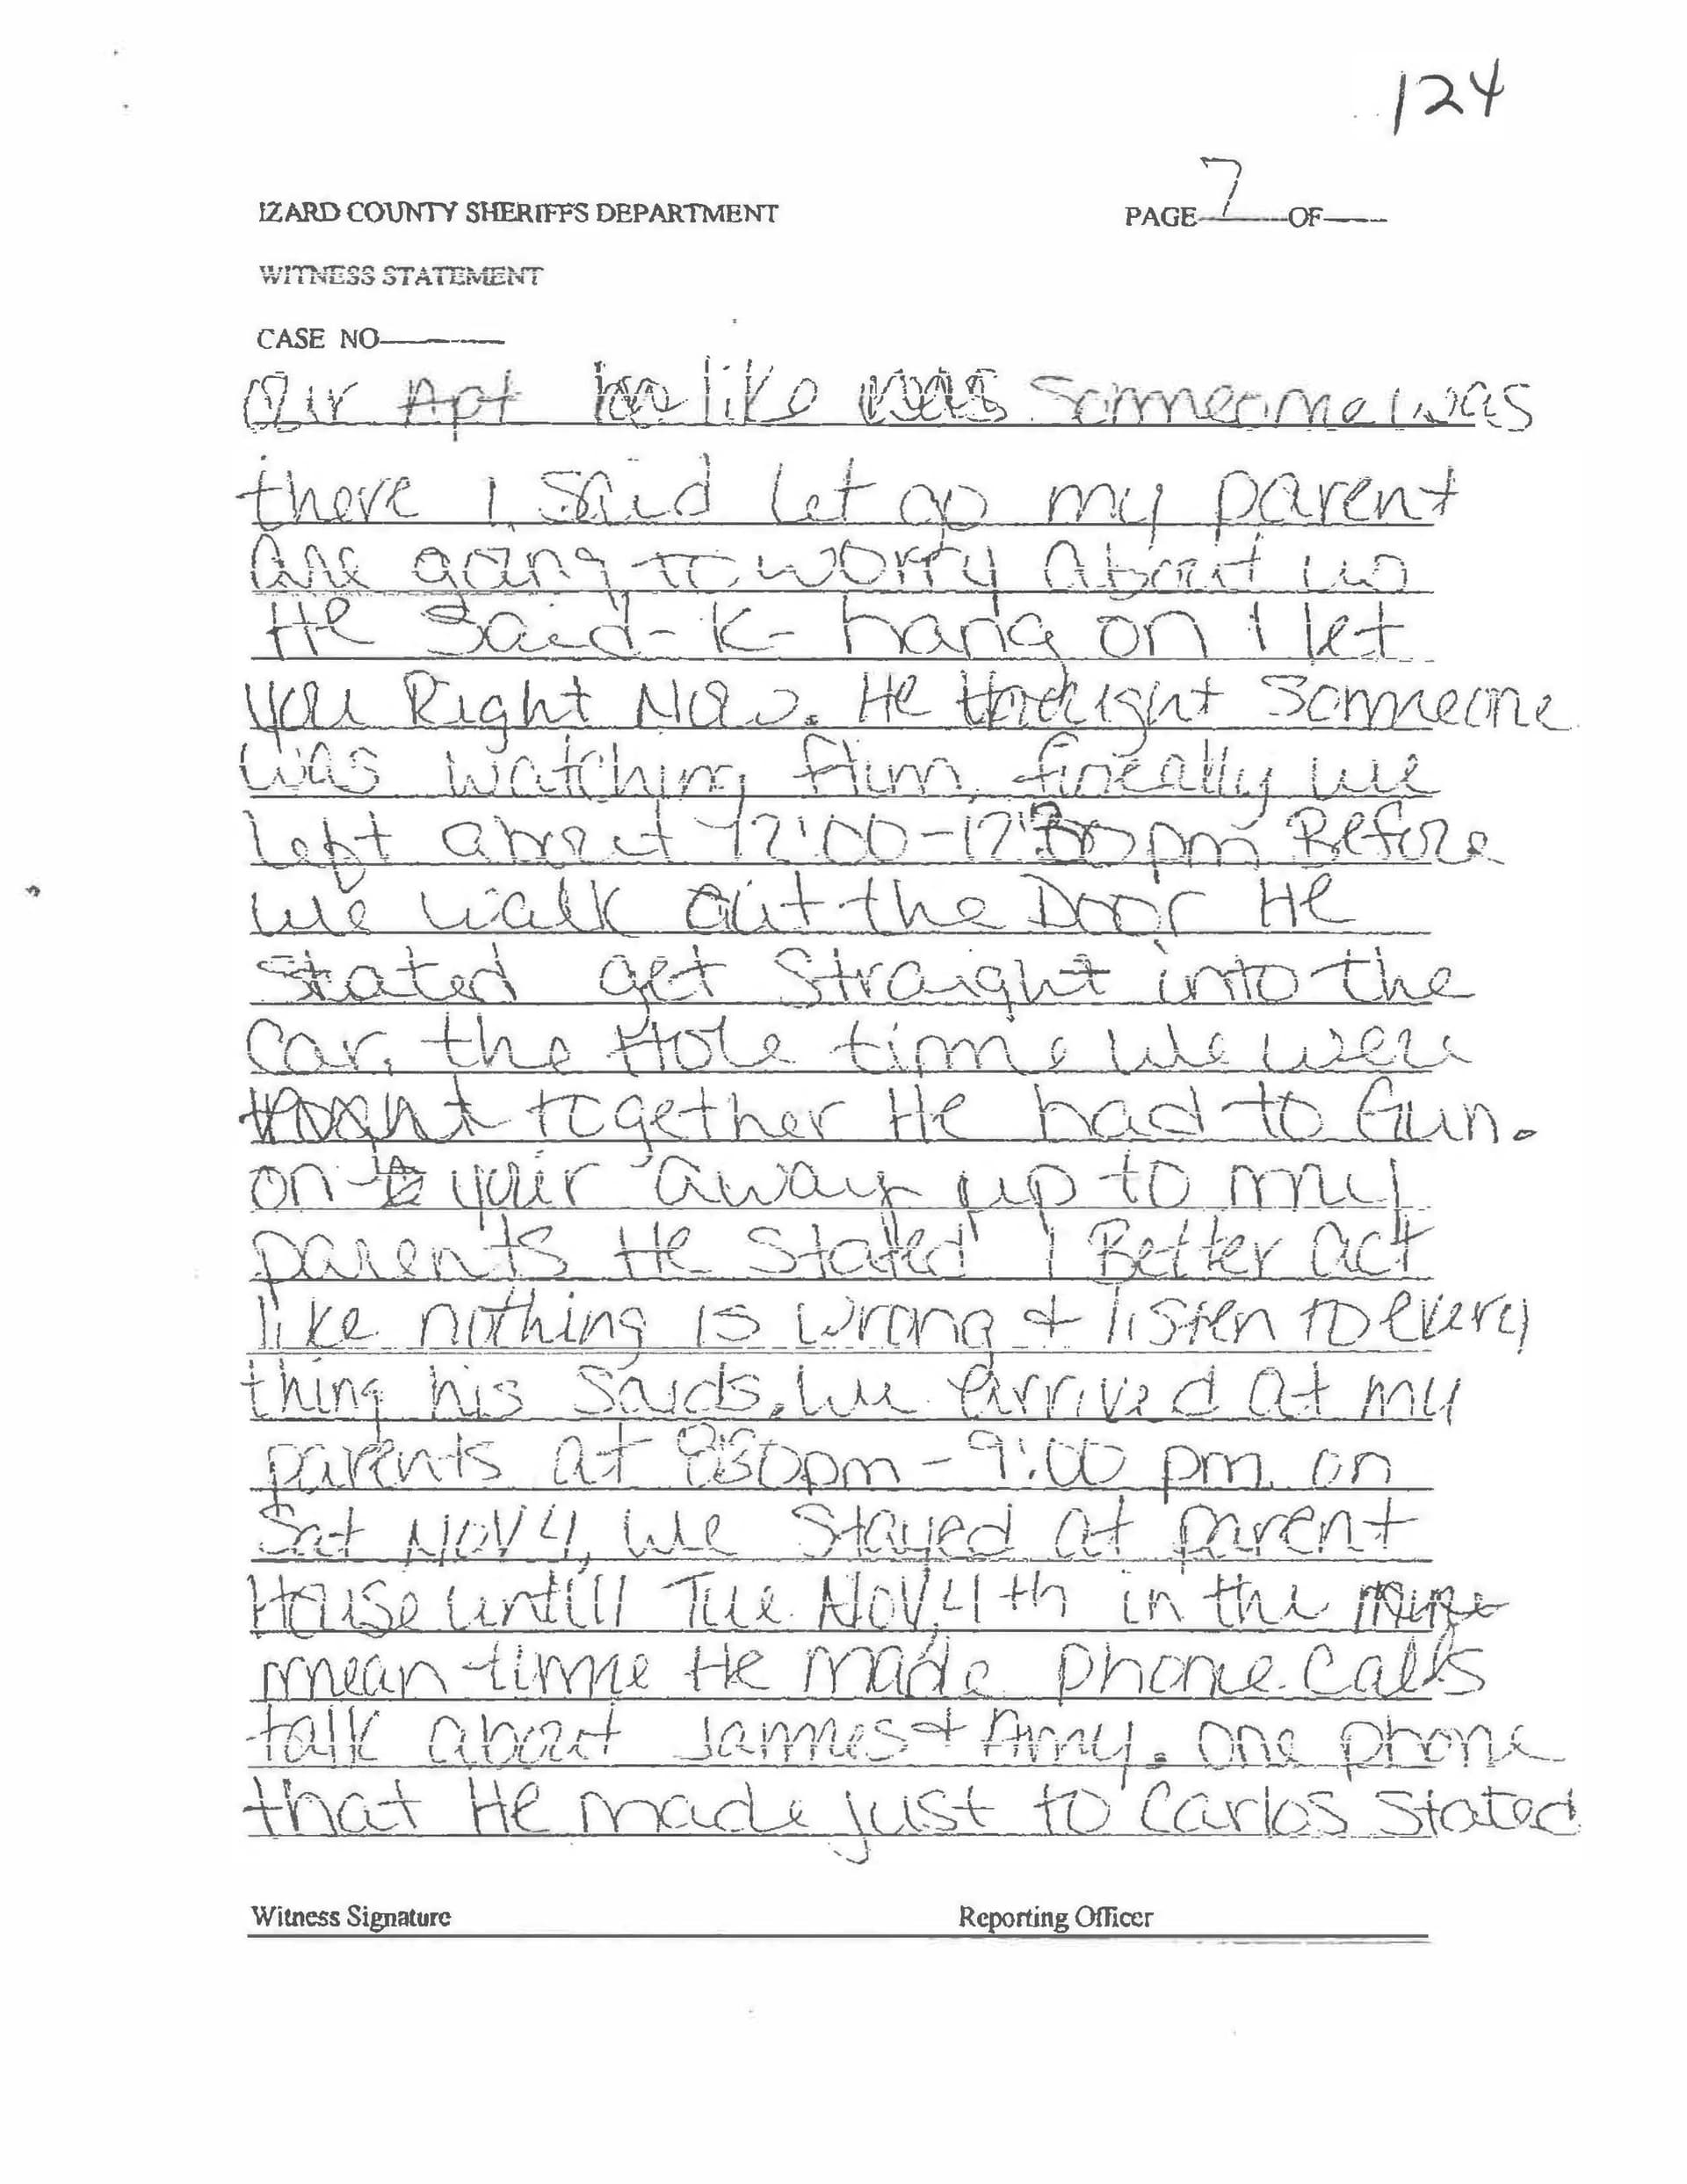 124
IZARD COUNTY SHERIFFS DEPARTMENT PAGE 7 OF
WITNESS STATEMENT
CASE NO
Our Apt like was someone was
there I said let go my parent
are going to worry about us
He said - K - hang on I let
you Right Now. He thought someone
was watching Him fineally we
left about 12:00-12:30pm Before
we walk out the Door He
stated get straight into the
car. the Hole time we were
together He had to Gun.
on your away up to my
parents He stated I Better act
like nothing is wrong + listen to every
thing his saids. we arrived at my
parents at 8:30pm - 9:00 pm on
Sat NOV 4, we stayed at parent
House untill Tue. NOV. 4th in the
mean time He made phone calls
talk about James + Amy. one phone
that He made just to Carlos stated
Witness Signature Reporting Officer